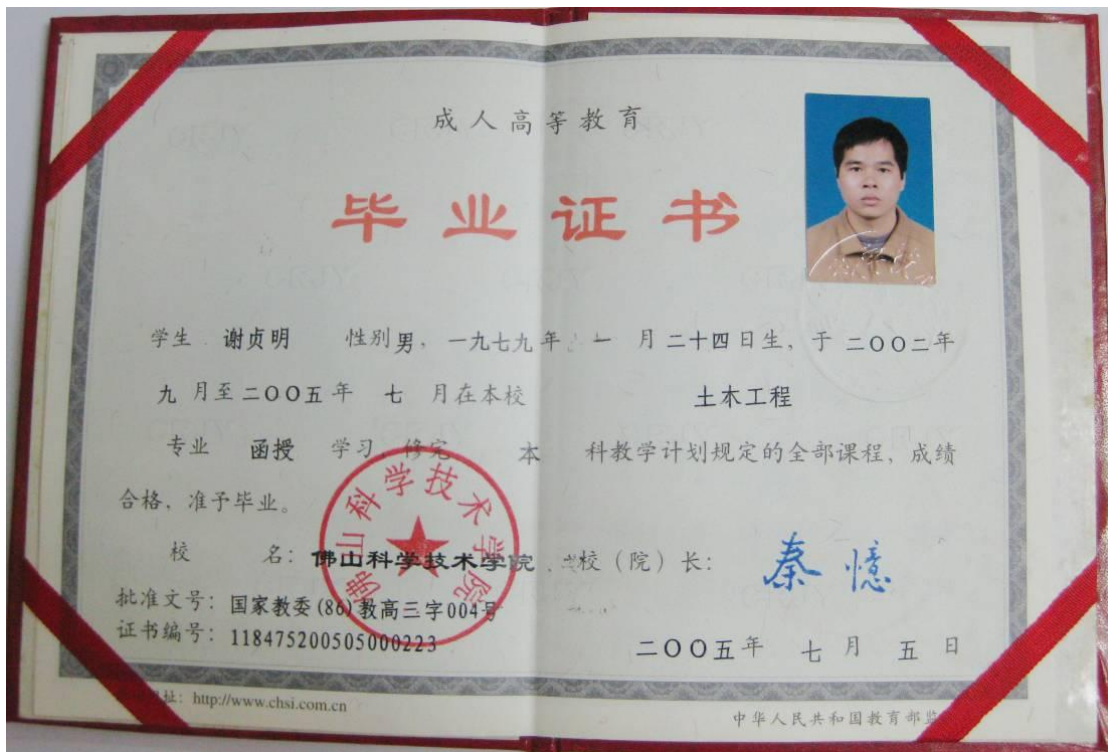 成人高等教育
毕业证书
学生 谢贞明 性别男，一九七九年 一 月二十四日生，于二〇〇二年
九月至二〇〇五年 七 月在本校 土木工程
专业 函授 学习，修完 本 科教学计划规定的全部课程，成绩
合格，准予毕业。
校 名：佛山科学技术学院 校（院）长：秦憶
批准文号：国家教委(86)教高三字004号
证书编号：118475200505000223
二〇〇五年 七 月 五 日
佛山科学技术学院
址：http://www.chsi.com.cn
中华人民共和国教育部监